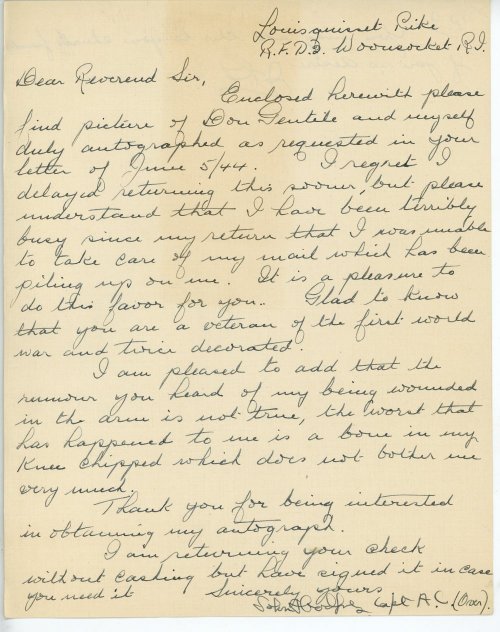 Louisquisset Pike
R.F.D.3. Woonsocket R.I.
Dear Reverend Sir,
Enclosed herewith please
find picture of Don Gentile and myself
duly autographed as requested in your
letter of June 5/44. I regret I
delayed returning this sooner, but please
understand that I have been terribly
busy since my return that I was unable
to take care of my mail which has been
piling up on me. It is a pleasure to
do this favor for you.. Glad to know
that you are a veteran of the first world
war and twice decorated.
I am pleased to add that the
rumour you heard of my being wounded
in the arm is not true, the worst that
has happened to me is a bone in my
knee chipped which does not bother me
very much.
Thank you for being interested
in obtaining my autograph.
I am returning your check
without cashing but have signed it in case
you need it Sincerely yours
John Godfrey Capt A.C (Over).